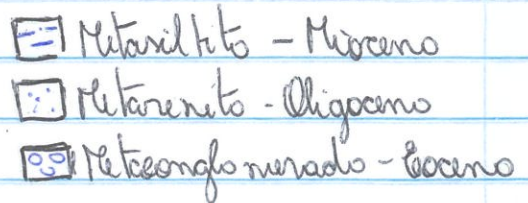 Metasiltito - Mioceno
Metarenito - Oligoceno
Metaconglomerado - Eoceno